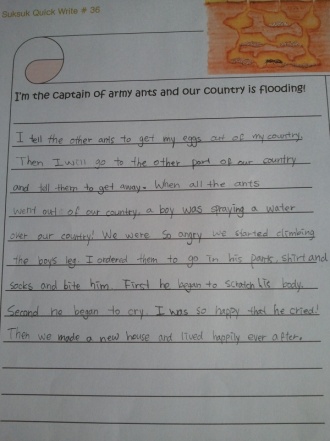 Suksuk Quick Write # 36
I'm the captain of army ants and our country is flooding!
I tell the other ants to get my eggs out of my country.
Then I will go to the other part of our country
and tell them to get away. When all the ants
went out of our country, a boy was spraying a water
over our country! We were so angry we started climbing
the boys leg. I ordered them to go in his pants, shirt and
socks and bite him. First he began to scratch his body.
Second he began to cry. I was so happy that he cried!
Then we made a new house and lived happily ever after.